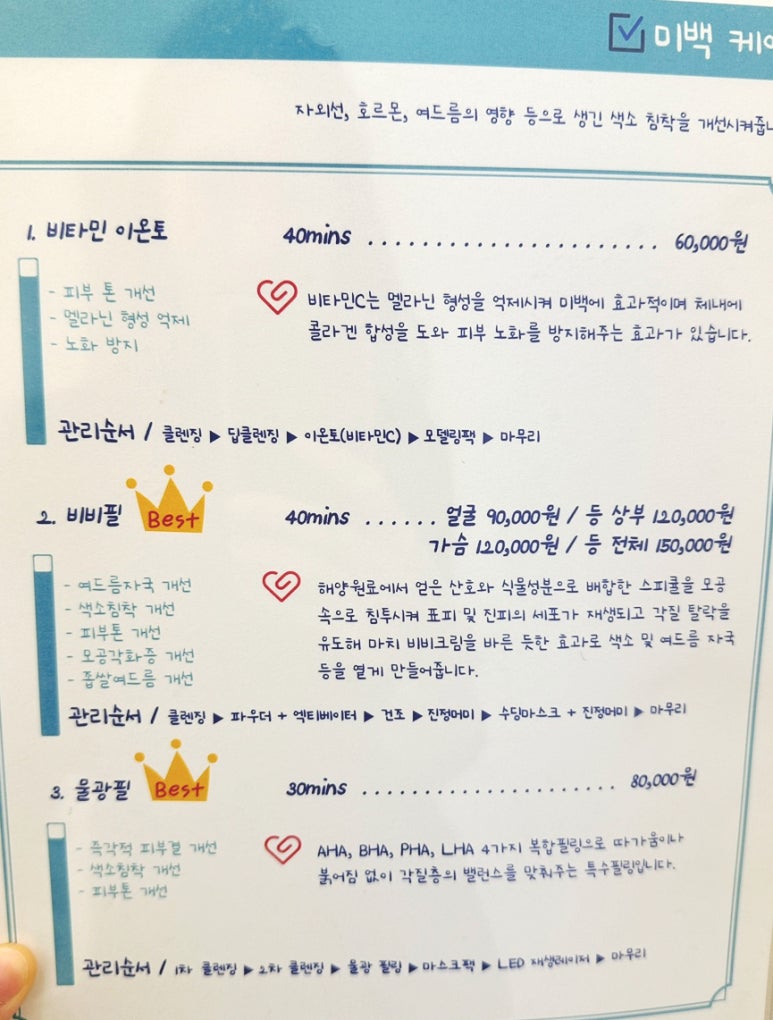 미백 케어
자외선, 호르몬, 여드름의 영향 등으로 생긴 색소 침착을 개선시켜줍니
1. 비타민 이온토 40mins ...................... 60,000원
- 피부 톤 개선
- 멜라닌 형성 억제
- 노화 방지
비타민C는 멜라닌 형성을 억제시켜 미백에 효과적이며 체내에
콜라겐 합성을 도와 피부 노화를 방지해주는 효과가 있습니다.
관리순서 / 클렌징 ▶ 딥클렌징 ▶ 이온토(비타민C) ▶ 모델링팩 ▶ 마무리
2. 비비필 Best 40mins ...... 얼굴 90,000원 / 등 상부 120,000원
가슴 120,000원 / 등 전체 150,000원
- 여드름자국 개선
- 색소침착 개선
- 피부톤 개선
- 모공각화증 개선
- 좁쌀여드름 개선
해양원료에서 얻은 산호와 식물성분으로 배합한 스피큘을 모공
속으로 침투시켜 표피 및 진피의 세포가 재생되고 각질 탈락을
유도해 마치 비비크림을 바른 듯한 효과로 색소 및 여드름 자국
등을 옅게 만들어줍니다.
관리순서 / 클렌징 ▶ 파우더 + 엑티베이터 ▶ 건조 ▶ 진정머미 ▶ 수딩마스크 + 진정머미 ▶ 마무리
3. 물광필 Best 30mins ...................... 80,000원
- 즉각적 피부결 개선
- 색소침착 개선
- 피부톤 개선
AHA, BHA, PHA, LHA 4가지 복합필링으로 따가움이나
붉어짐 없이 각질층의 밸런스를 맞춰주는 특수필링입니다.
관리순서 / 1차 클렌징 ▶ 2차 클렌징 ▶ 물광 필링 ▶ 마스크팩 ▶ LED 재생레이저 ▶ 마무리